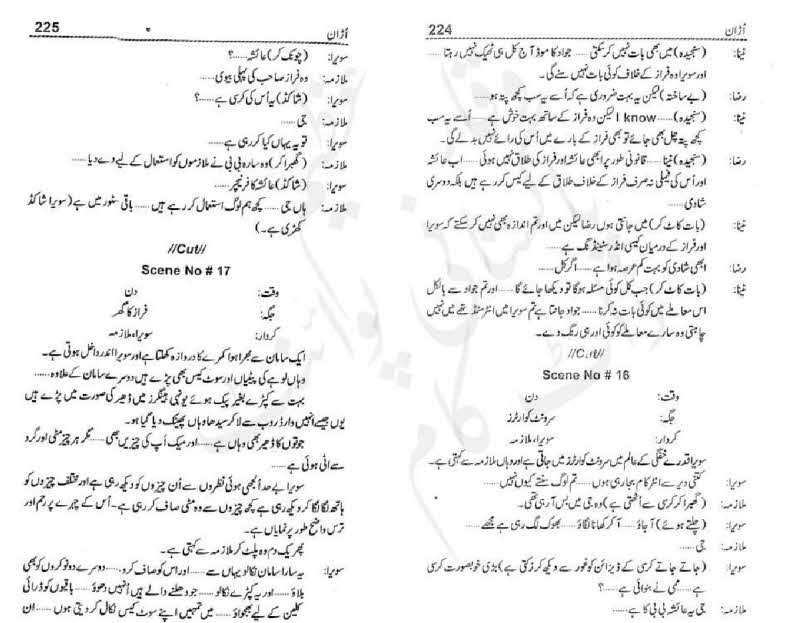 اُڑان
224
نینا: (سنجیدہ) میں بھی بات نہیں کر سکتی ...... جواد کا موڈ آج کل ہی ٹھیک نہیں رہتا
اور سویرا وہ فراز کے خلاف کوئی بات نہیں سنے گی۔
رضا: (بے ساختہ) لیکن یہ بہت ضروری ہے کہ اُسے یہ سب کچھ پتہ ہو ......
نینا: (سنجیدہ) ...... I know لیکن وہ فراز کے ساتھ بہت خوش ہے ...... اُسے یہ سب
کچھ پتہ چل بھی جائے تو بھی فراز کے بارے میں اُس کی رائے نہیں بدلے گی۔
رضا: (سنجیدہ) نینا ...... قانونی طور پر ابھی عائشہ اور فراز کی طلاق نہیں ہوئی ...... اب عائشہ
اور اُس کی فیملی نہ صرف فراز کے خلاف طلاق کے لیے کیس کر رہے ہیں بلکہ دوسری
شادی ......
نینا: (بات کاٹ کر) میں جانتی ہوں رضا لیکن میں اور تم اندازہ بھی نہیں کر سکتے کہ سویرا
اور فراز کے درمیان کیسی انڈرسٹینڈنگ ہے ......
رضا: ابھی شادی کو بہت کم عرصہ ہوا ہے ...... اگر کل ......
نینا: (بات کاٹ کر) جب کل کوئی مسئلہ ہوگا تو دیکھا جائے گا ...... اور تم جواد سے بالکل
اس معاملے میں کوئی بات نہ کرنا ...... جواد جانتا ہے تم سویرا میں انٹرسٹڈ تھے میں نہیں
چاہتی وہ سارے معاملے کو کوئی اور ہی رنگ دے۔
//Cut//
Scene No # 16
وقت: دن
جگہ: سرونٹ کوارٹرز
کردار: سویرا، ملازمہ
سویرا قدرے خفگی کے عالم میں سرونٹ کوارٹرز میں جاتی ہے اور وہاں ملازمہ سے کہتی ہے۔
سویرا: کتنی دیر سے انٹرکام بجا رہی ہوں ...... تم لوگ سنتے کیوں نہیں ......
ملازمہ: (گھبرا کر کرسی سے اُٹھتی ہے) وہ جی میں بس آ رہی تھی۔
سویرا: (چلتے ہوئے) آ جاؤ ...... آ کر کھانا لگاؤ ...... بھوک لگ رہی ہے مجھے ......
ملازمہ: جی ......
سویرا: (جاتے جاتے کرسی کے ڈیزائن کو غور سے دیکھ کر رُکتی ہے) بڑی خوبصورت کرسی
ہے ...... ممی نے بنوائی ہے ......؟
ملازمہ: جی یہ عائشہ بی بی کا ہے ......
اُڑان
225
سویرا: (چونک کر) عائشہ ......؟
ملازمہ: وہ فراز صاحب کی پہلی بیوی ......
سویرا: (شاکڈ) یہ اُس کی کرسی ہے ......؟
ملازمہ: جی ......
سویرا: تو یہ یہاں کیا کر رہی ہے ......
ملازمہ: (گھبرا کر) وہ سارہ بی بی نے ملازموں کو استعمال کے لیے دے دیا ......
سویرا: (شاکڈ) عائشہ کا فرنیچر ......
ملازمہ: ہاں جی ...... کچھ ہم لوگ استعمال کر رہے ہیں ...... باقی سٹور میں ہے (سویرا شاکڈ
کھڑی ہے۔)
//Cut//
Scene No # 17
وقت: دن
جگہ: فراز کا گھر
کردار: سویرا، ملازمہ
ایک سامان سے بھرا ہوا کمرے کا دروازہ کھلتا ہے اور سویرا اندر داخل ہوتی ہے۔
وہاں لوہے کی پیٹیاں اور سوٹ کیس بھی پڑے ہیں دوسرے سامان کے علاوہ ......
بہت سے کپڑے بغیر پیک ہوئے یونہی ہینگرز میں ڈھیر کی صورت میں پڑے ہیں
یوں جیسے انہیں وارڈروب سے لا کر سیدھا وہاں پھینک دیا گیا ہو۔
جوتوں کا ڈھیر بھی وہاں ہے ...... اور میک اَپ کی چیزیں بھی ...... مگر ہر چیز مٹی اور گرد
سے اٹی ہوئی ہے ......
سویرا بے حد اُلجھی ہوئی نظروں سے اُن چیزوں کو دیکھ رہی ہے اور مختلف چیزوں کو
ہاتھ لگا لگا کر دیکھ رہی ہے کچھ چیزوں سے وہ مٹی صاف کر رہی ہے۔ اُس کے چہرے پر رحم اور
ترس واضح طور پر نمایاں ہے۔
پھر یک دم وہ پلٹ کر ملازمہ سے کہتی ہے۔
سویرا: یہ سارا سامان نکالو یہاں سے ...... اور اس کو صاف کرو ...... دوسرے دو نوکروں کو بھی
بلاؤ ...... اور یہ کپڑے نکالو ...... جو دھلنے والے ہیں اُنہیں دھوؤ ...... باقیوں کو ڈرائی
کلین کے لیے بھجواؤ ...... میں تمہیں اپنے سوٹ کیس نکال کر دیتی ہوں ...... ان